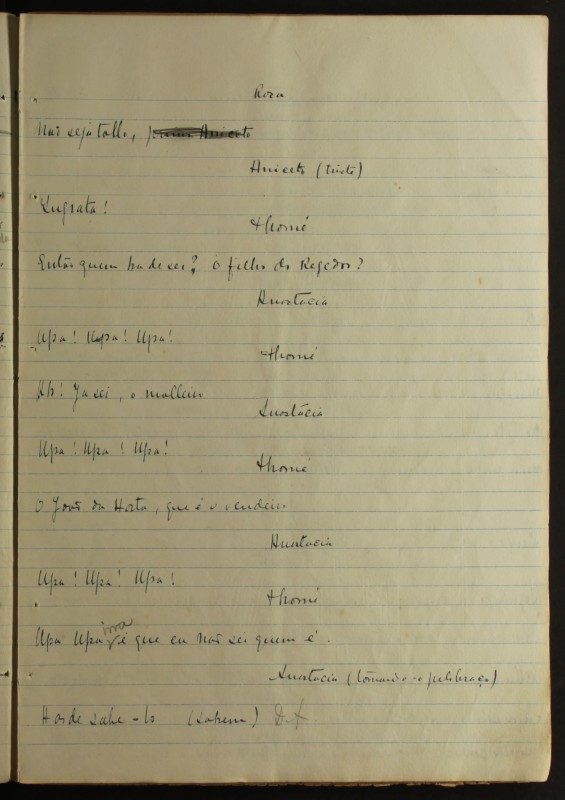 Rosa
Não seja tollo,
Aniceto (triste)
Ingrata!
Thomé
Então quem ha de ser? O filho do Regedor?
Anastacia
Upa! Upa! Upa!
Thomé
Ah! Ja sei, o molleiro
Anastácia
Upa! Upa! Upa!
Thomé
O João da Horta, que é o vendeiro
Anastacia
Upa! Upa! Upa!
Thomé
Upa Upa é que eu não sei quem é.
Anastacia (tomando-o pelo braço)
Hasde sabe-lo (Sahem)